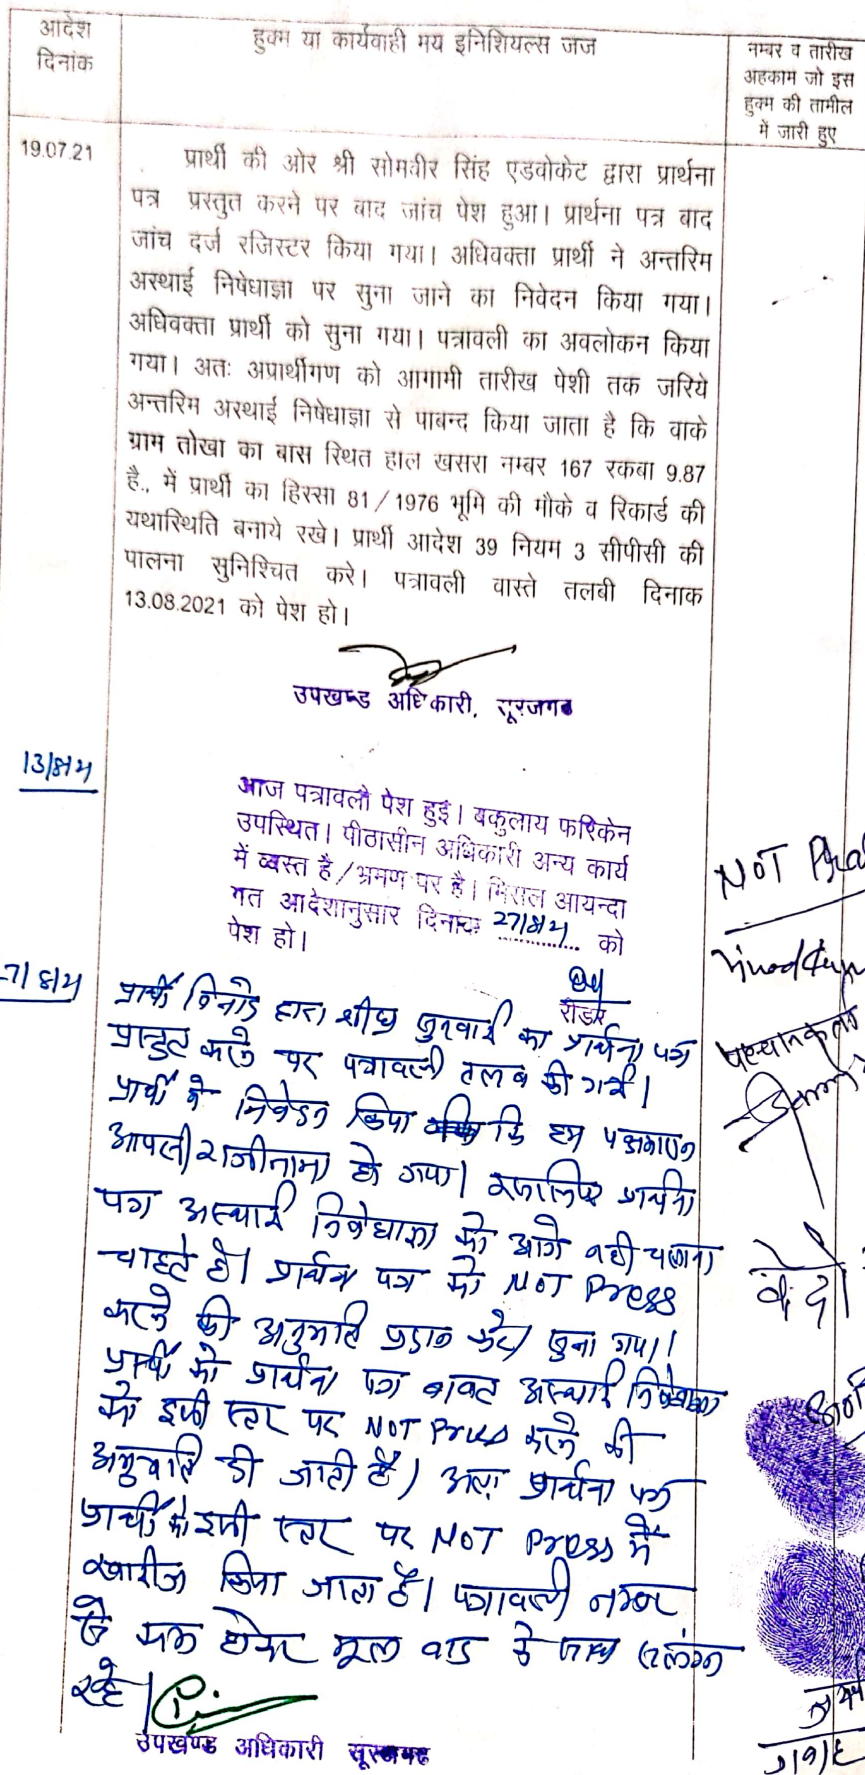 आदेश
दिनांक
हुक्म या कार्यवाही मय इनिशियल्स जज
नम्बर व तारीख
अहकाम जो इस
हुक्म की तामील
में जारी हुए
19.07.21
प्रार्थी की ओर श्री सोमवीर सिंह एडवोकेट द्वारा प्रार्थना
पत्र प्रस्तुत करने पर बाद जांच पेश हुआ। प्रार्थना पत्र बाद
जांच दर्ज रजिस्टर किया गया। अधिवक्ता प्रार्थी ने अन्तरिम
अस्थाई निषेधाज्ञा पर सुना जाने का निवेदन किया गया।
अधिवक्ता प्रार्थी को सुना गया। पत्रावली का अवलोकन किया
गया। अतः अप्रार्थीगण को आगामी तारीख पेशी तक जरिये
अन्तरिम अस्थाई निषेधाज्ञा से पाबन्द किया जाता है कि वाके
ग्राम तोखा का बास स्थित हाल खसरा नम्बर 167 रकबा 9.87
है., में प्रार्थी का हिस्सा 81/1976 भूमि की मौके व रिकार्ड की
यथास्थिति बनाये रखे। प्रार्थी आदेश 39 नियम 3 सीपीसी की
पालना सुनिश्चित करे। पत्रावली वास्ते तलबी दिनाक
13.08.2021 को पेश हो।
उपखण्ड अधिकारी, सूरजगढ
13/8/21
आज पत्रावली पेश हुई। वकुलाय फरिकेन
उपस्थित। पीठासीन अधिकारी अन्य कार्य
में व्यस्त है/भ्रमण पर है। मिसल आयन्दा
गत आदेशानुसार दिनांक 27/8/21 को
पेश हो।
रीडर
7/8/21
प्रार्थी विनोद द्वारा शीघ्र सुनवाई का प्रार्थना पत्र
प्रस्तुत करने पर पत्रावली तलब की गई।
प्रार्थी ने निवेदन किया कि हम पक्षकारान
आपसी राजीनामा हो गया। इसलिए प्रार्थना
पत्र अस्थाई निषेधाज्ञा को आगे नही चलाना
चाहते है। प्रार्थना पत्र को NOT Press
करने की अनुमति प्रदान करे। सुना गया।
प्रार्थी को प्रार्थना पत्र बाबत अस्थाई निषेधाज्ञा
को इसी स्तर पर NOT Press करने की
अनुमति दी जाती है। अतः प्रार्थना पत्र
प्रार्थी को इसी स्तर पर NOT Press में
खारीज किया जाता है। पत्रावली नम्बर
से कम होकर मूल वाद के साथ संलग्न
रहे।
उपखण्ड अधिकारी सूरजगढ
NOT Pre
Vinod Kum
पहचानकर्ता